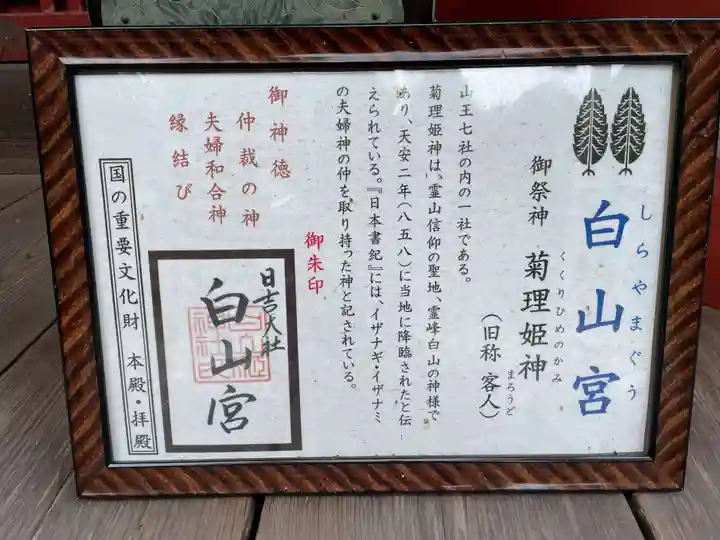 白山宮
しらやまぐう
御祭神 菊理姫神
くくりひめのかみ
(旧称 客人)
まろうど
山王七社の内の一社である。
菊理姫神は、霊山信仰の聖地、霊峰白山の神様で
あり、天安二年(八五八)に当地に降臨されたと伝
えられている。『日本書紀』には、イザナギ・イザナミ
の夫婦神の仲を取り持った神と記されている。
御神徳
仲裁の神
夫婦和合神
縁結び
御朱印
日吉大社
白山宮
国の重要文化財 本殿・拝殿